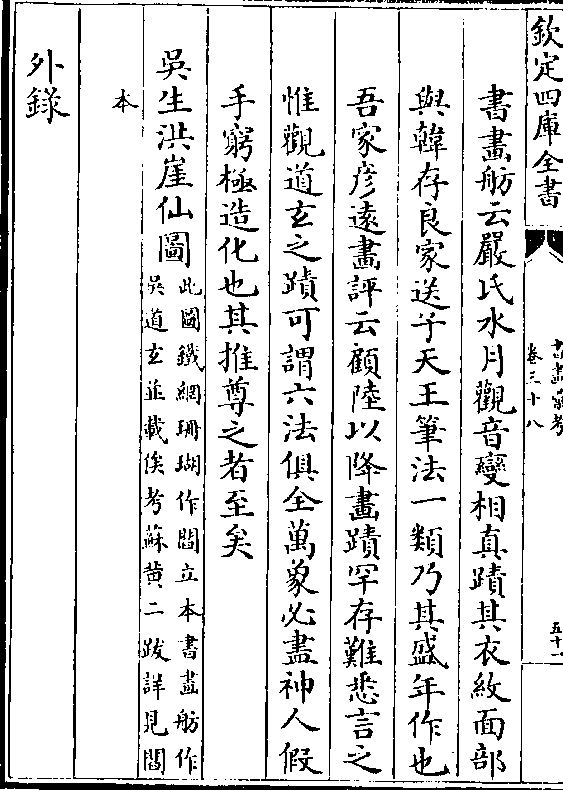 欽定四庫全書
卷三十八
五十一
書畫舫云嚴氏水月觀音變相真蹟其衣紋面部
與韓存良家送子天王筆法一類乃其盛年作也
吾家彦遠畫評云顧陸以降畫蹟罕存難悉言之
惟觀道玄之蹟可謂六法俱全萬象必盡神人假
手窮極造化也其推尊之者至矣
吳生洪崖仙圖此圖鐵網珊瑚作閻立本書畫舫作
吳道玄並載俟考蘇黄二跋詳見閻
本
外録